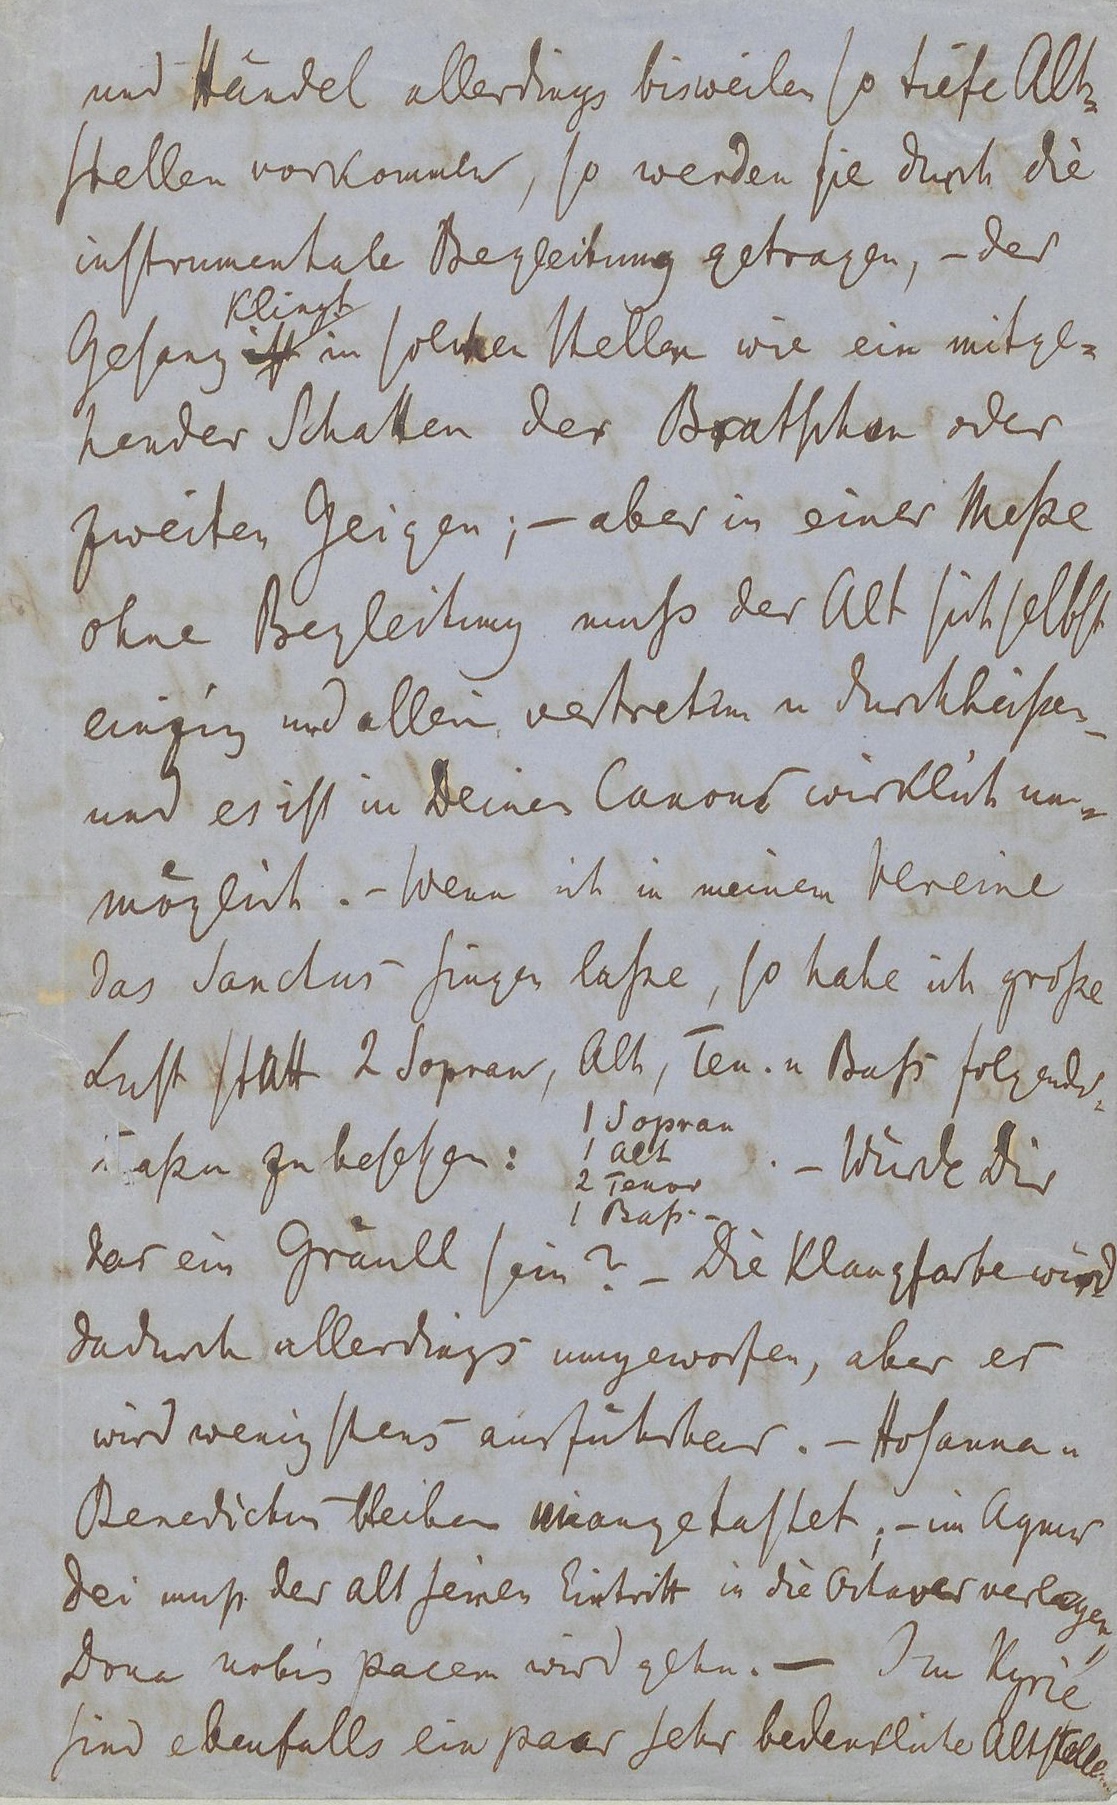 und Händel allerdings bisweilen so tiefe Alt=
stellen vorkommen, so werden sie durch die
instrumentale Begleitung getragen, – der
klingt
Gesang ist in solchen Stellen wie ein mitge=
hender Schatten der Bratschen oder
zweiten Geigen; – aber in einer Meße
ohne Begleitung muß der Alt sich selbst
einzig und allein vertreten u durchbeißen –
und es ist in Deinen Canons wirklich un=
möglich. – Wenn ich in meinem Vereine
das Sanctus singen laße, so habe ich große
Lust statt 2 Sopran, Alt, Ten. u Baß folgender=
maßen zu besetzen:
1 Sopran
1 Alt
2 Tenor
1 Baß. –
. – Würde Dir
das ein Gräull sein? – Die Klangfarbe wird
dadurch allerdings umgeworfen, aber es
wird wenigstens ausführbar. – Hosanna u
Benedictus bleiben unangetastet; – im Agnus
Dei muß der Alt seinen Eintritt in die Octaver verlegen,
Dona nobis pacem wird gehn. — Im Kyrie
sind ebenfalls ein paar sehr bedenkliche Altstellen